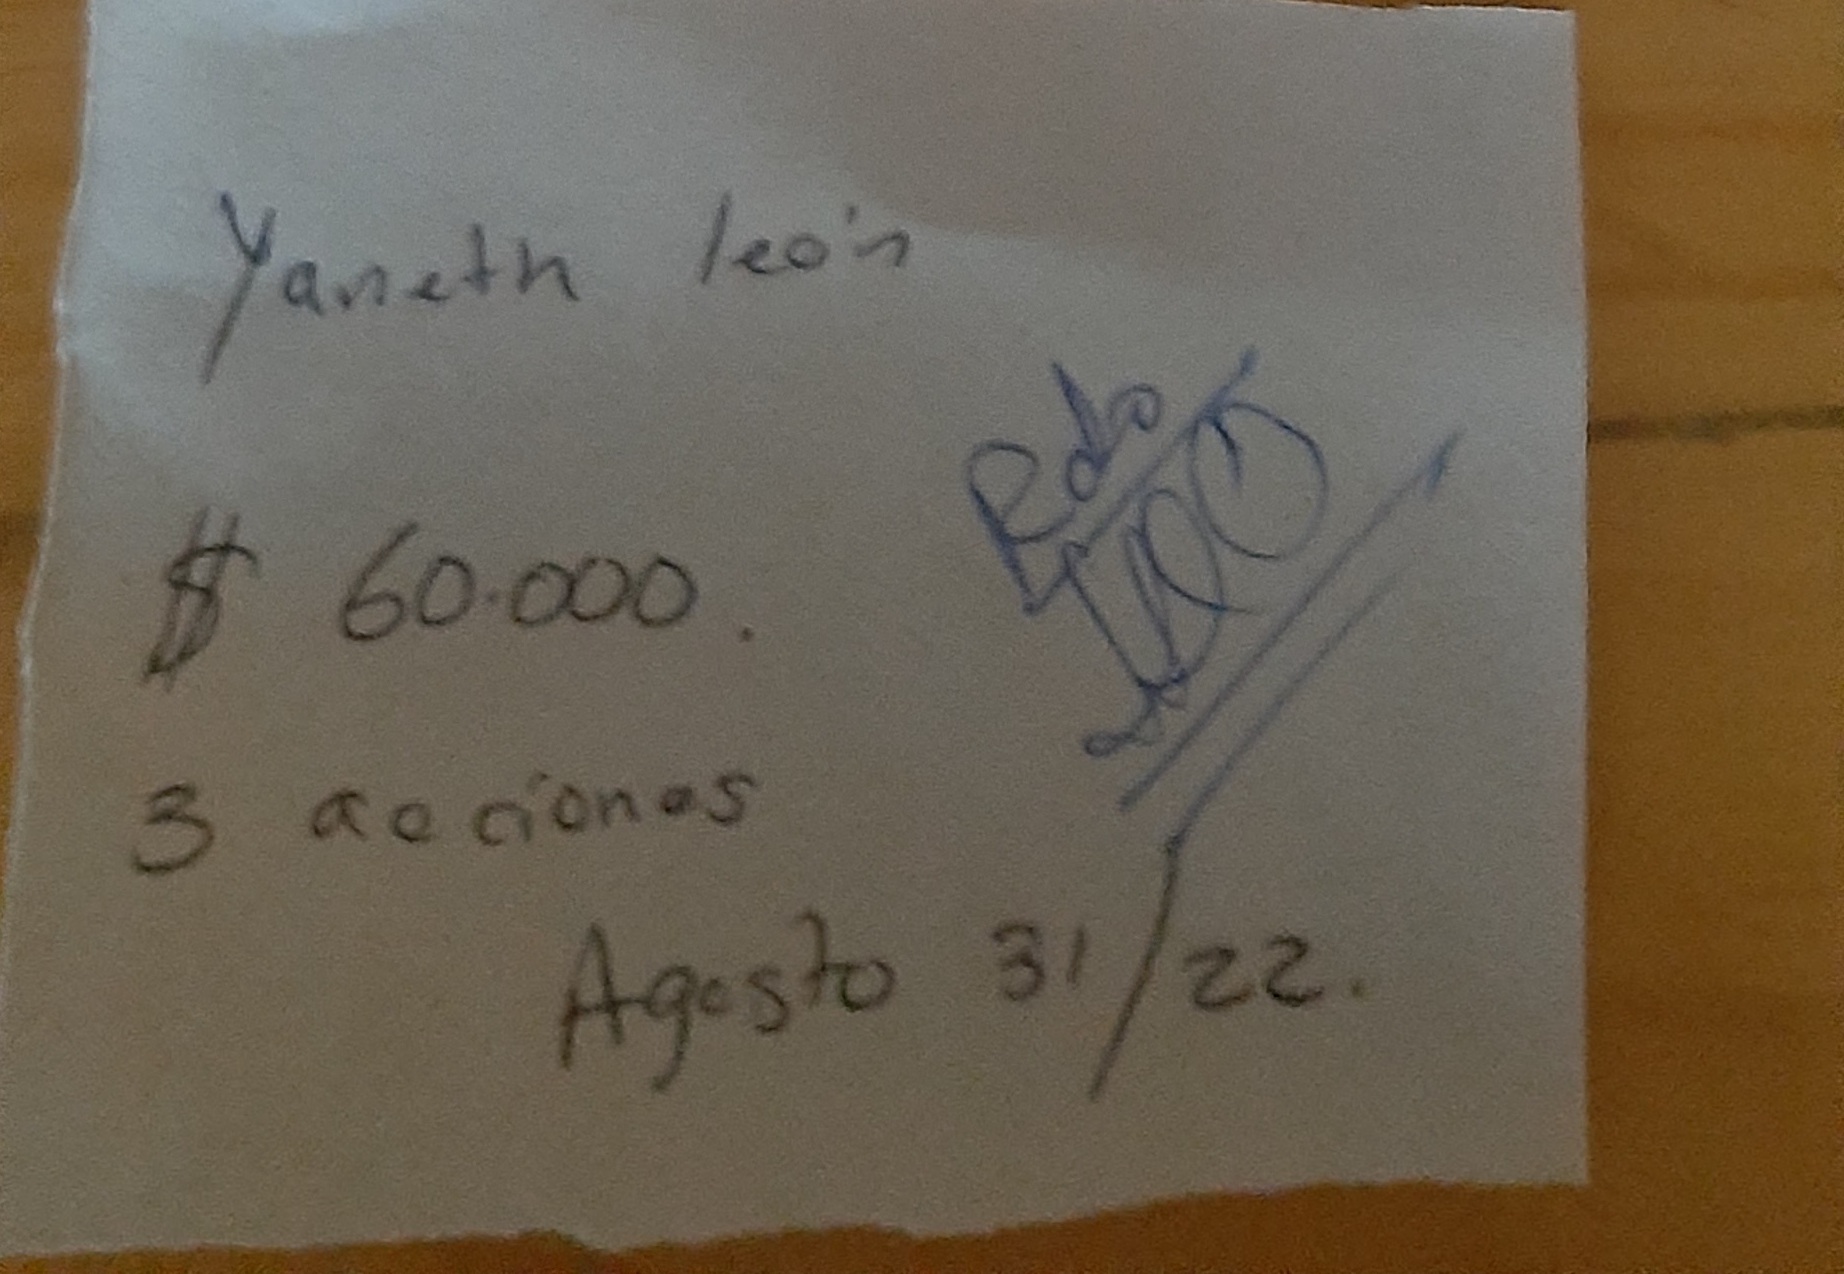 Yaneth león
Rdo
$ 60.000.
3 acciones
Agosto 31/22.